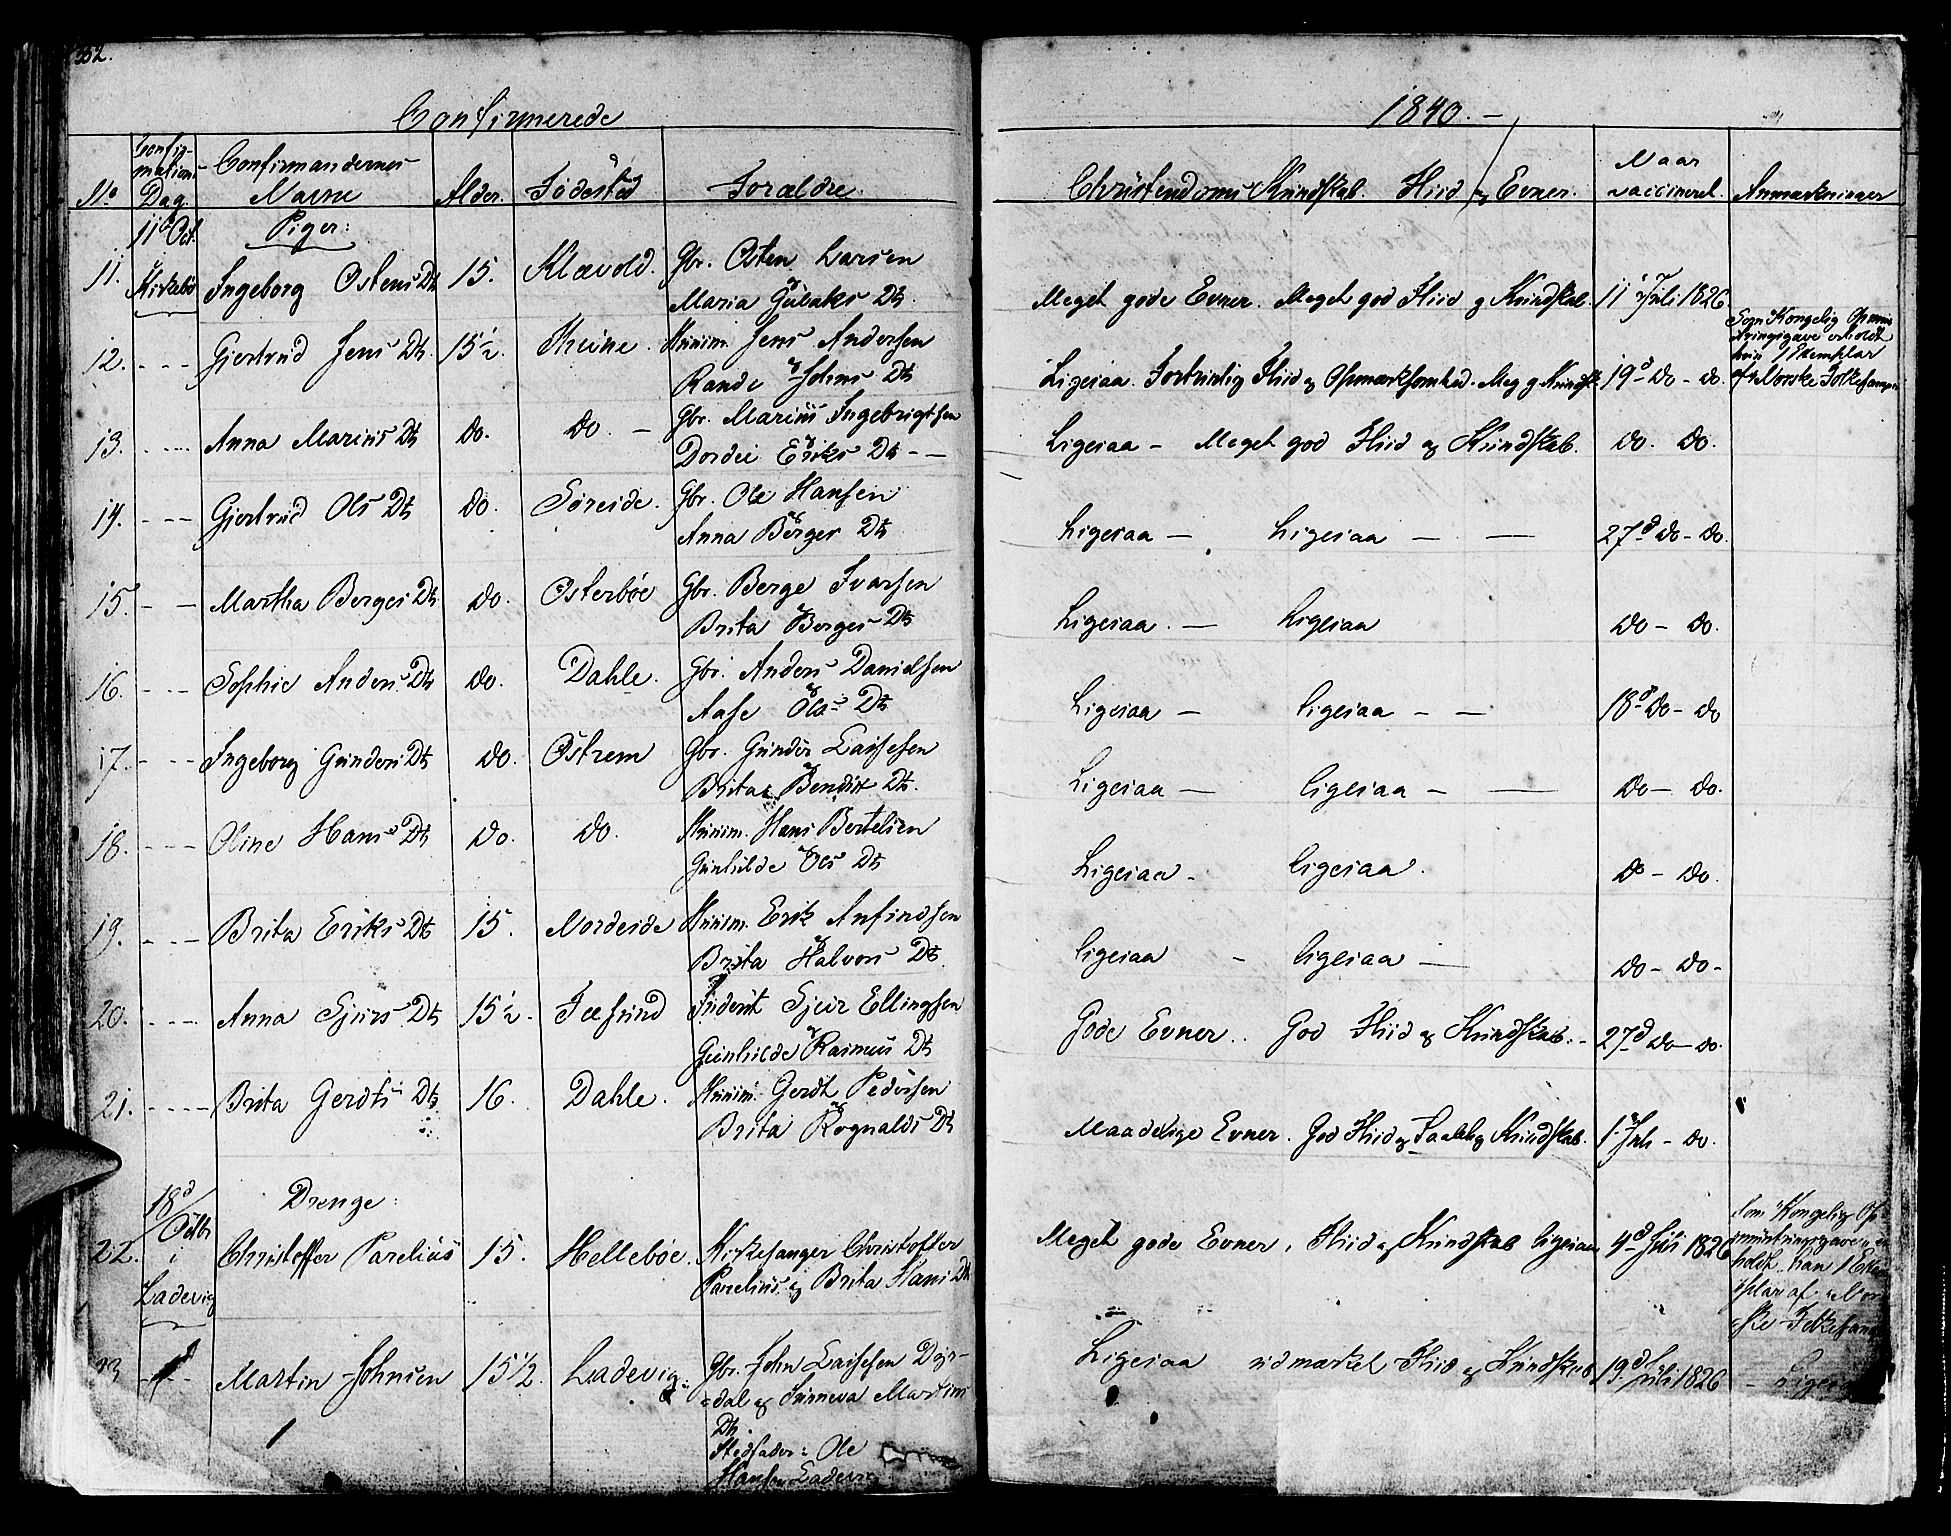 332.
Confirmerede
1840. -
No
Confir-
mations-
Dag.
Confirmandernes
Navne
Alder.
Födestd
Forældre
Christendoms Kundskab. Fliid og Evner.
Naar
vaccineret.
Anmærkninger
11te Oct.
Kirkebö
Piger:
11. Ingeborg Ostens Dtr 15. Klævold. Gbr. Osten Larsen
Maria Gulaks Dtr. Meget gode Evner. Meget god Fliid og Kundskab. 11 Juli 1826
12. - - - Gjertrud Jens Dtr. 15½. Huusm. Jens Andersen
Rande Johns Dtr Ligesaa. Fortrinlig Fliid og Opmærksomhed. Meg. g. Kundsk. 19d - do - do.
Som Kongelig Opmun
tringsgave erholdt
hun 1 Exemplar
af Norske Folkesange
13. - - - Anna Marius Dtr do. do. - Gbr. Marius Ingebrigtsen
Dordei Eriks Dtr - - Ligesaa - Meget god Fliid og Kundskab. do. do.
14. - - - Gjertrud Ols Dtr do. Söreide. Gbr. Ole Hansen
Anna Börges Dtr Ligesaa - Ligesaa - - 27d do - do.
15. - - Martha Berges Dtr do. Osterböe Gbr. Berge Ivarsen
Brita Börges Dtr Ligesaa. - Ligesaa do - do.
16. - - - Sophie Anders Dtr do. Dahle. Gbr. Anders Danielsen
Aase Ols Dtr Ligesaa - ligesaa - - 18d do - do
17. - - - Ingeborg Gunders Dtr do. Östrem Gbr. Gunder
Brita Bendix Dtr. Ligesaa - ligesaa - - do - do.
18. - - - Oline Hans Dtr do. do. Huusm. Hans Bertelsen
Gunhilde Ols Dtr Ligesaa - ligesaa. do - do.
19. - - - Brita Eriks Dtr 15. Nordeide Huusm. Erik Anfindsen
Brita Halvors Dtr ligesaa - ligesaa - do - do -
20. - - - Anna Sjurs Dtr 15½. Sjur Ellingsen
Gunhilde Rasmus Dtr Gode Evner. God Fliid og Kundskab. - 27d do - do.
21. - - - Brita Gerdts Dtr 16. Dahle. Huusm. Gerdt Pedersen
Brita Rognalds Dtr Maadelige Evner. God Fliid og Taalelig Kundskab. 1 Juli - do.
18d/Octbr
i
Ladevig
Drenge:
22. Christoffer Parelius 15. Helleböe. Kirkesanger Christoffer
Parelius og Brita Hans Dtr Meget gode Evner, Fliid og Kundskab ligesaa 4d Juli 1826
Som Kongelig Op-
muntringsgave er
holdt han 1 Exem
plar af Nor
ske Folkesange
23 - - Martin Johnsen 15½. Ladevig. Gbr. John
-dal og Sunneva Martins
Dtr.
Stedfader: Ole
Hansen Ladevig Ligesaa udmærket Fliid og Kundskab 19d Juli 1826 - Ligesaa